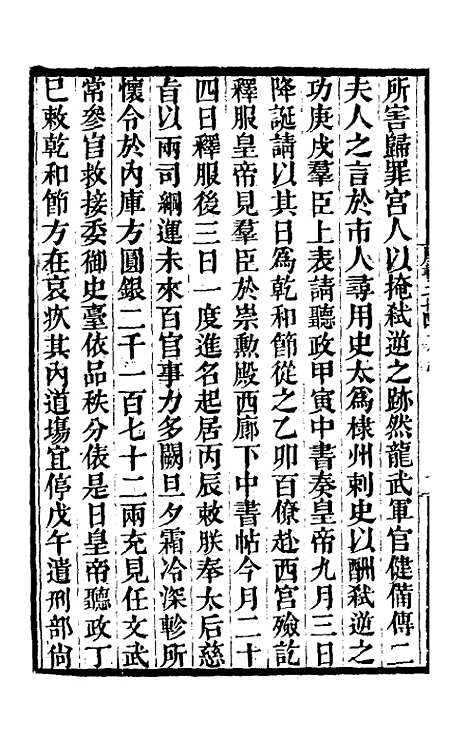 所害歸罪宮人以掩弒逆之跡然龍武軍官健備傳二
夫人之言於市人尋用史太爲棣州刺史以酬弒逆之
功庚戌羣臣上表請聽政甲寅中書奏皇帝九月三日
降誕請以其日爲乾和節從之乙卯百僚赴西宮殮訖
釋服皇帝見羣臣於崇勲殿西廊下中書帖今月二十
四日釋服後三日一度進名起居丙辰敕朕奉太后慈
旨以兩司綱運未來百官事力多闕旦夕霜冷深軫所
懷令於內庫方圓銀二千一百七十二兩充見任文武
常參官救接委御史臺依品秩分俵是日皇帝聽政丁
巳敕乾和節方在哀疚其內道場宜停戊午遣刑部尙